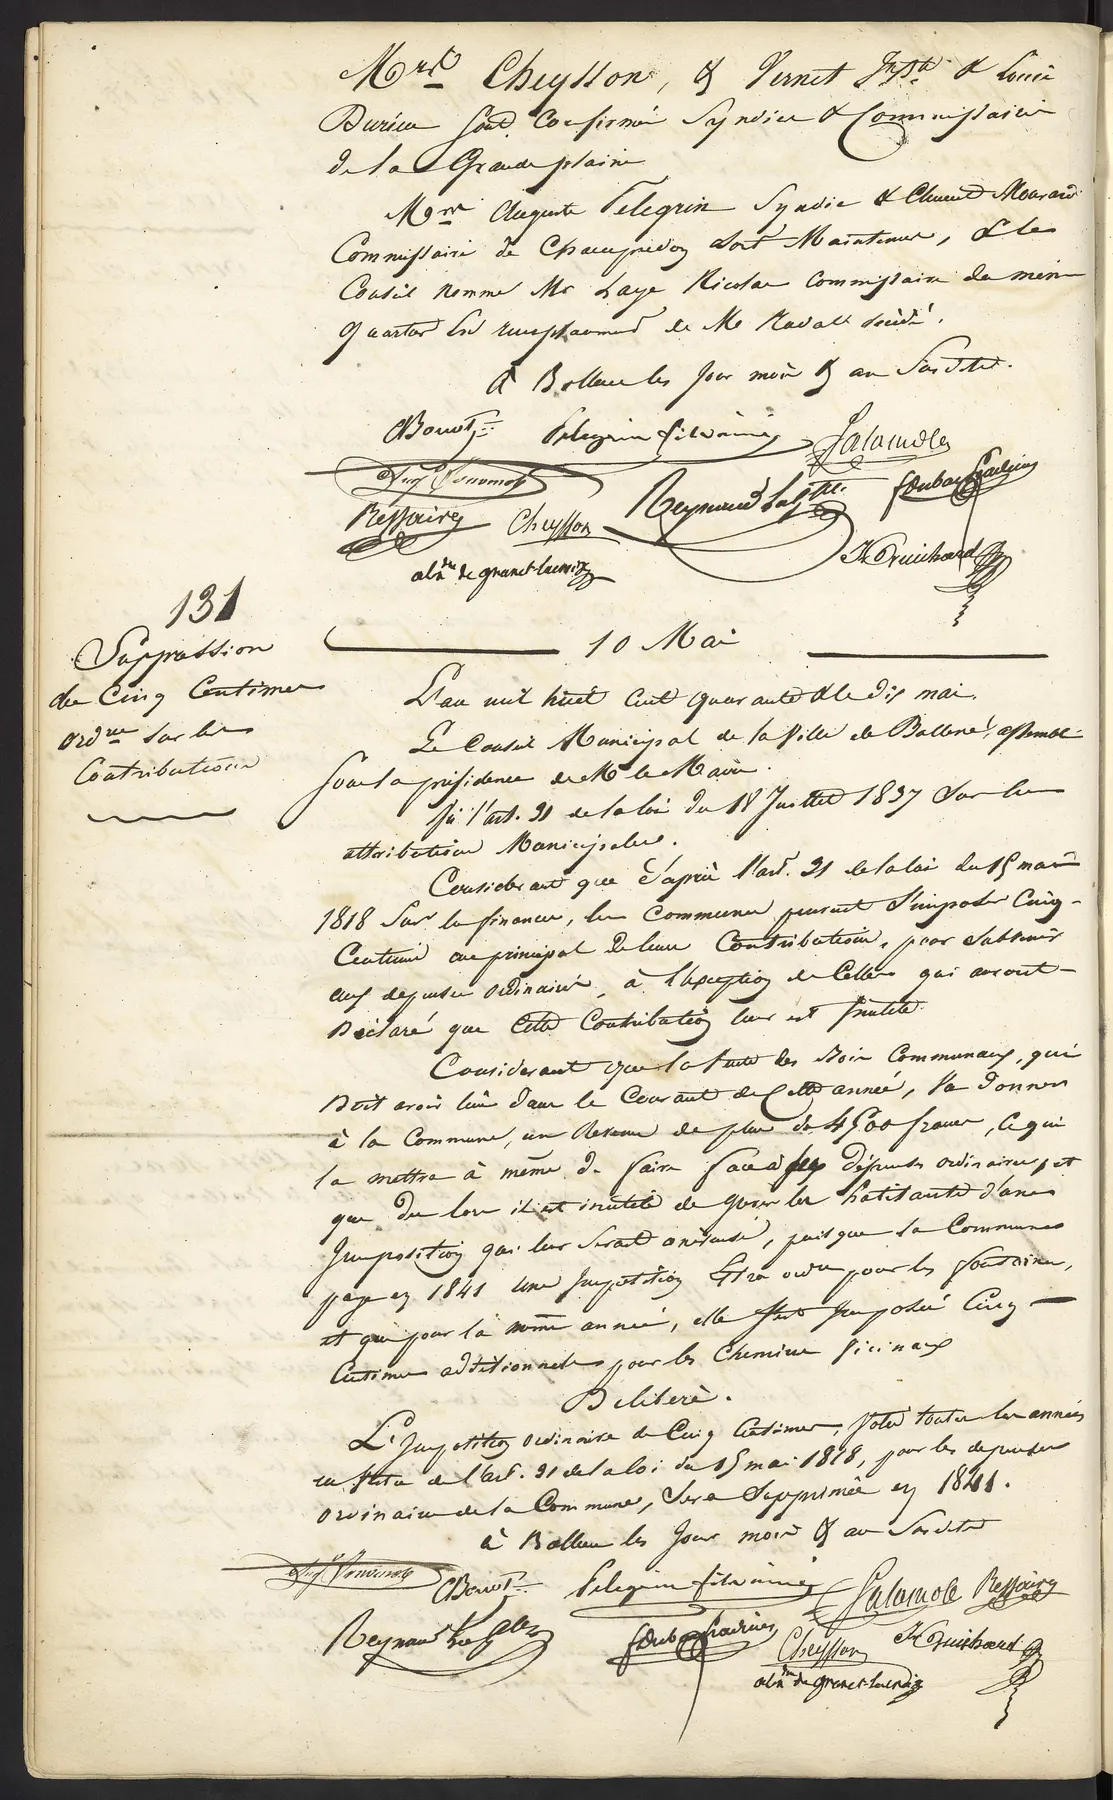 Mrs Cheysson, & Vernet & Louis
Durieu sont confirmés Syndics & Commissaires
de la Grande plaine
Mrs Auguste Pelegrin Syndic & Clement Monard
Commissaire de sont Maintenus, & le
Conseil nomme Mr Laye Nicolas Commissaire du même
quartier en remplacement de Mr décédé.
à Bollene les jour mois & an susdits.
CBouvet
Pelegrin fils ainé
Salamole
Reynaud La
Ressaire
Cheysson
abdre de granet-lacroix
131
Suppression
de Cinq Centimes
ordres sur les
Contributions
10 Mai
L'an mil huit cent quarante & le dix mai.
Le Conseil Municipal de la Ville de Bollene, assemblé
sous la présidence de Mr le Maire.
Vu l'art. 31 de la loi du 18 Juillet 1837 sur les
attributions Municipales.
Considerant que d'après l'art. 31 de la loi du 15 mai
1818 sur les finances, les communes peuvent s'imposer Cinq
Centimes au principal de leurs Contributions, pour subvenir
aux depenses ordinaires, à l'exception de Celles qui auront
Déclaré que Cette Contribution leur est inutile
Considerant que la vente des Bois Communaux, qui
Doit avoir lieu dans le Courant de Cette année, va donner
à la Commune, un Revenu de plus de 4500 francs, ce qui
la mettra à même de faire face à ses dépenses ordinaires, et
que des lors il est inutile de grever les habitants d'une
Imposition qui leur serait onéreuse, puisque la Commune
paye en 1841 une Imposition Extra ordre pour les fontaines,
et que pour la même année, elle s'est Imposée Cinq
Centimes additionnels pour les Chemins Vicinaux
Délibère.
L'Imposition ordinaire de Cinq Centimes, votée toutes les années
en vertu de l'art. 31 de la loi du 15 mai 1818, pour les depenses
ordinaires de la Commune, Sera Supprimée en 1841.
à Bollene les Jour mois & an susdits
CBouvet
Pelegrin fils ainé
Salamole
Ressaire
Reynaud
Cheysson
abdre de granet-lacroix